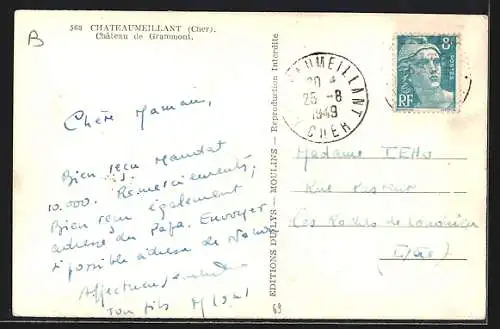 B
568 CHATEAUMEILLANT (Cher).
Château de Grammont.
Chère Maman,
Bien reçu Mandat
10.000. Remerciements,
Bien reçu également
adresse du Papa. Envoyer
si possible adresse de
Affectueusement
Ton fils
EDITIONS DU LYS — MOULINS — Reproduction Interdite
69
CHATEAUMEILLANT
20 4
25 -8
1949
CHER
8F
POSTES
RF
Madame
Rue Pasteur
Les de